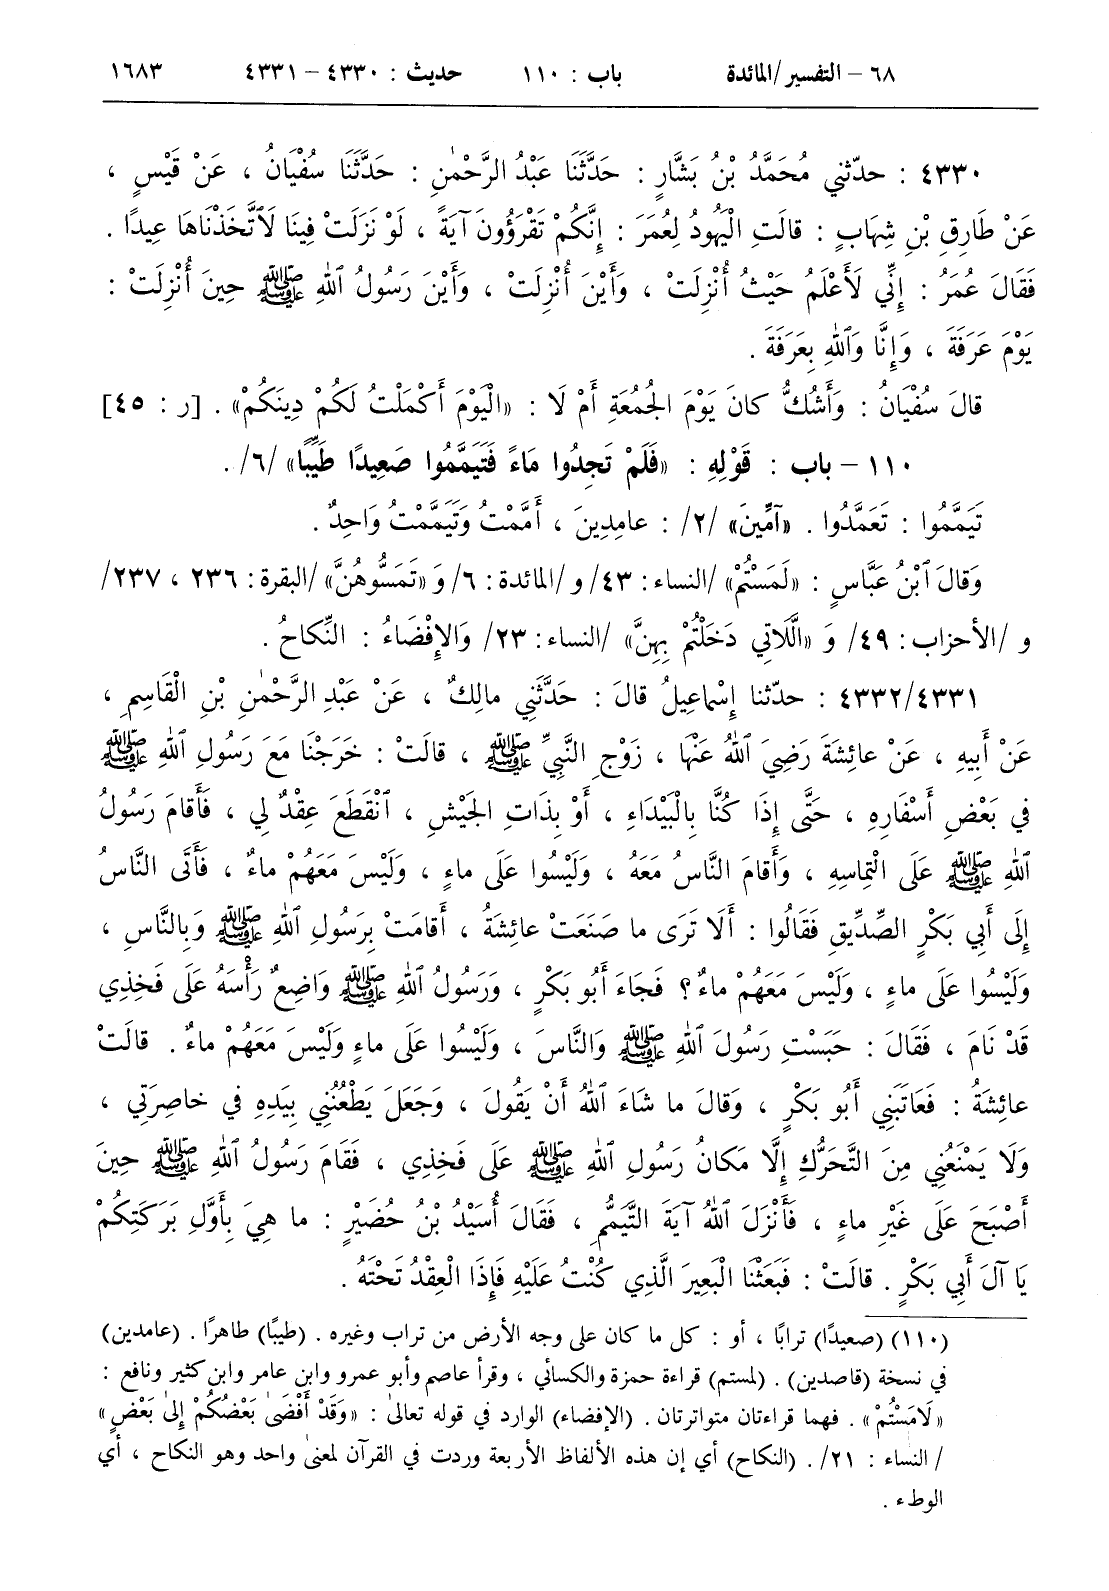 ٦٨ – التفسير/المائدة باب : ١١٠ حديث : ٤٣٣٠ – ٤٣٣١ ١٦٨٣
٤٣٣٠ : حدّثني مُحَمَّدُ بْنُ بَشَّارٍ : حَدَّثَنَا عَبْدُ الرَّحْمٰنِ : حَدَّثَنَا سُفْيَانُ ، عَنْ قَيْسٍ ،
عَنْ طَارِقِ بْنِ شِهَابٍ : قالَتِ الْيَهُودُ لِعُمَرَ : إِنَّكُمْ تَقْرَؤُونَ آيَةً ، لَوْ نَزَلَتْ فِينَا لَاتَّخَذْنَاهَا عِيدًا .
فَقَالَ عُمَرُ : إِنِّي لَأَعْلَمُ حَيْثُ أُنْزِلَتْ ، وَأَيْنَ أُنْزِلَتْ ، وَأَيْنَ رَسُولُ ٱللهِ ﷺ حِينَ أُنْزِلَتْ :
يَوْمَ عَرَفَةَ ، وَإِنَّا وَٱللهِ بِعَرَفَةَ .
قالَ سُفْيَانُ : وَأَشُكُّ كانَ يَوْمَ الجُمُعَةِ أَمْ لَا : «الْيَوْمَ أَكْمَلْتُ لَكُمْ دِينَكُمْ» . [ر : ٤٥]
١١٠ – باب : قَوْلِهِ : «فَلَمْ تَجِدُوا مَاءً فَتَيَمَّمُوا صَعِيدًا طَيِّبًا» /٦/ .
تَيَمَّمُوا : تَعَمَّدُوا . «آمِّينَ» /٢/ : عامِدِينَ ، أَمَّمْتُ وَتَيَمَّمْتُ وَاحِدٌ .
وَقالَ ٱبْنُ عَبَّاسٍ : «لَمَسْتُمْ» /النساء : ٤٣/ و /المائدة : ٦/ وَ «تَمَسُّوهُنَّ» /البقرة : ٢٣٦ ، ٢٣٧/
و /الأحزاب : ٤٩/ وَ «الَّلاتِي دَخَلْتُمْ بِهِنَّ» /النساء : ٢٣/ وَالإِفْضَاءُ : النِّكاحُ .
٤٣٣٢/٤٣٣١ : حدّثنا إِسْماعِيلُ قالَ : حَدَّثَنِي مالِكٌ ، عَنْ عَبْدِ الرَّحْمٰنِ بْنِ الْقَاسِمِ ،
عَنْ أَبِيهِ ، عَنْ عائِشَةَ رَضِيَ ٱللهُ عَنْهَا ، زَوْجِ النَّبِيِّ ﷺ ، قالَتْ : خَرَجْنَا مَعَ رَسُولِ ٱللهِ ﷺ
في بَعْضِ أَسْفَارِهِ ، حَتَّى إِذَا كُنَّا بِالْبَيْدَاءِ ، أَوْ بِذَاتِ الجَيْشِ ، ٱنْقَطَعَ عِقْدٌ لِي ، فَأَقامَ رَسُولُ
ٱللهِ ﷺ عَلَى الْتِمَاسِهِ ، وَأَقامَ النَّاسُ مَعَهُ ، وَلَيْسُوا عَلَى ماءٍ ، وَلَيْسَ مَعَهُمْ ماءٌ ، فَأَتَى النَّاسُ
إِلَى أَبِي بَكْرٍ الصِّدِّيقِ فَقَالُوا : أَلَا تَرَى ما صَنَعَتْ عائِشَةُ ، أَقامَتْ بِرَسُولِ ٱللهِ ﷺ وَبِالنَّاسِ ،
وَلَيْسُوا عَلَى ماءٍ ، وَلَيْسَ مَعَهُمْ ماءٌ ؟ فَجَاءَ أَبُو بَكْرٍ ، وَرَسُولُ ٱللهِ ﷺ وَاضِعٌ رَأْسَهُ عَلَى فَخِذِي
قَدْ نَامَ ، فَقَالَ : حَبَسْتِ رَسُولَ ٱللهِ ﷺ وَالنَّاسَ ، وَلَيْسُوا عَلَى ماءٍ وَلَيْسَ مَعَهُمْ ماءٌ . قالَتْ
عائِشَةُ : فَعَاتَبَنِي أَبُو بَكْرٍ ، وَقالَ ما شَاءَ ٱللهُ أَنْ يَقُولَ ، وَجَعَلَ يَطْعُنُنِي بِيَدِهِ في خاصِرَتِي ،
وَلَا يَمْنَعُنِي مِنَ التَّحَرُّكِ إِلَّا مَكانُ رَسُولِ ٱللهِ ﷺ عَلَى فَخِذِي ، فَقَامَ رَسُولُ ٱللهِ ﷺ حِينَ
أَصْبَحَ عَلَى غَيْرِ ماءٍ ، فَأَنْزَلَ ٱللهُ آيَةَ التَّيَمُّمِ ، فَقَالَ أُسَيْدُ بْنُ حُضَيْرٍ : ما هِيَ بِأَوَّلِ بَرَكَتِكُمْ
يَا آلَ أَبِي بَكْرٍ . قالَتْ : فَبَعَثْنَا الْبَعِيرَ الَّذِي كُنْتُ عَلَيْهِ فَإِذَا الْعِقْدُ تَحْتَهُ .
(١١٠) (صعيدًا) ترابًا ، أو : كل ما كان على وجه الأرض من تراب وغيره . (طيبًا) طاهرًا . (عامدين)
في نسخة (قاصدين) . (لمستم) قراءة حمزة والكسائي ، وقرأ عاصم وأبو عمرو وابن عامر وابن كثير ونافع :
«لَامَسْتُمْ» . فهما قراءتان متواترتان . (الإفضاء) الوارد في قوله تعالىٰ : «وَقَدْ أَفْضَىٰ بَعْضُكُمْ إِلىٰ بَعْضٍ»
/ النساء : ٢١/ . (النكاح) أي إن هذه الألفاظ الأربعة وردت في القرآن لمعنىٰ واحد وهو النكاح ، أي
الوطء .